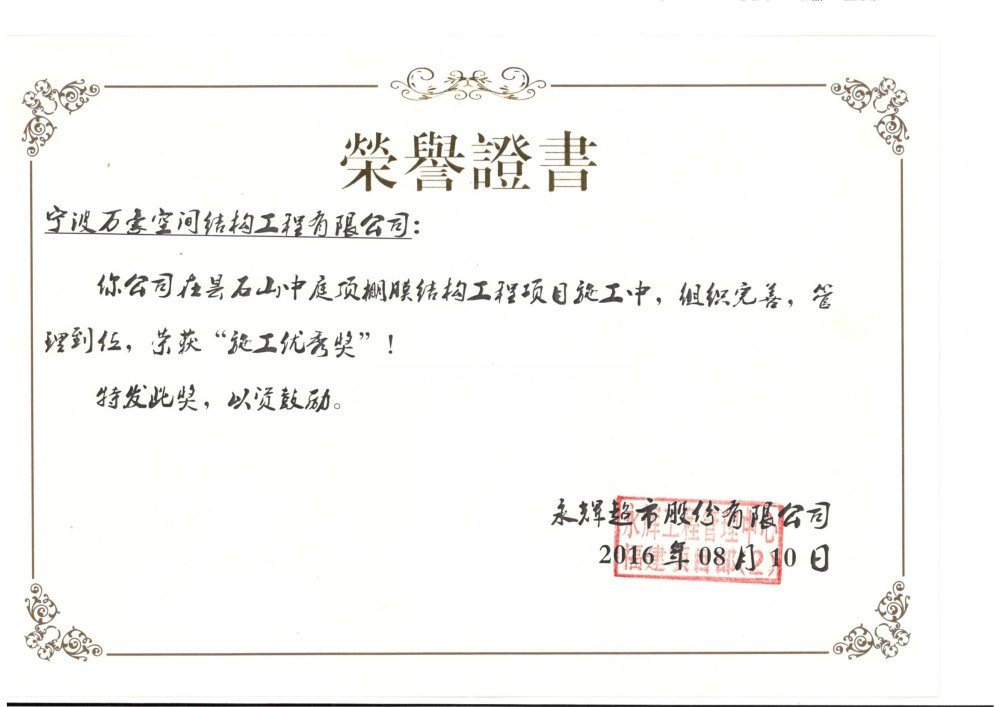 榮譽證書
宁波万豪空间结构工程有限公司：
你公司在昙石山中庭顶棚膜结构工程项目施工中，组织完善，管
理到位，荣获“施工优秀奖”！
特发此奖，以资鼓励。
永辉超市股份有限公司
2016 年 08 月 10 日
永辉工程管理中心
福建项目部(2)